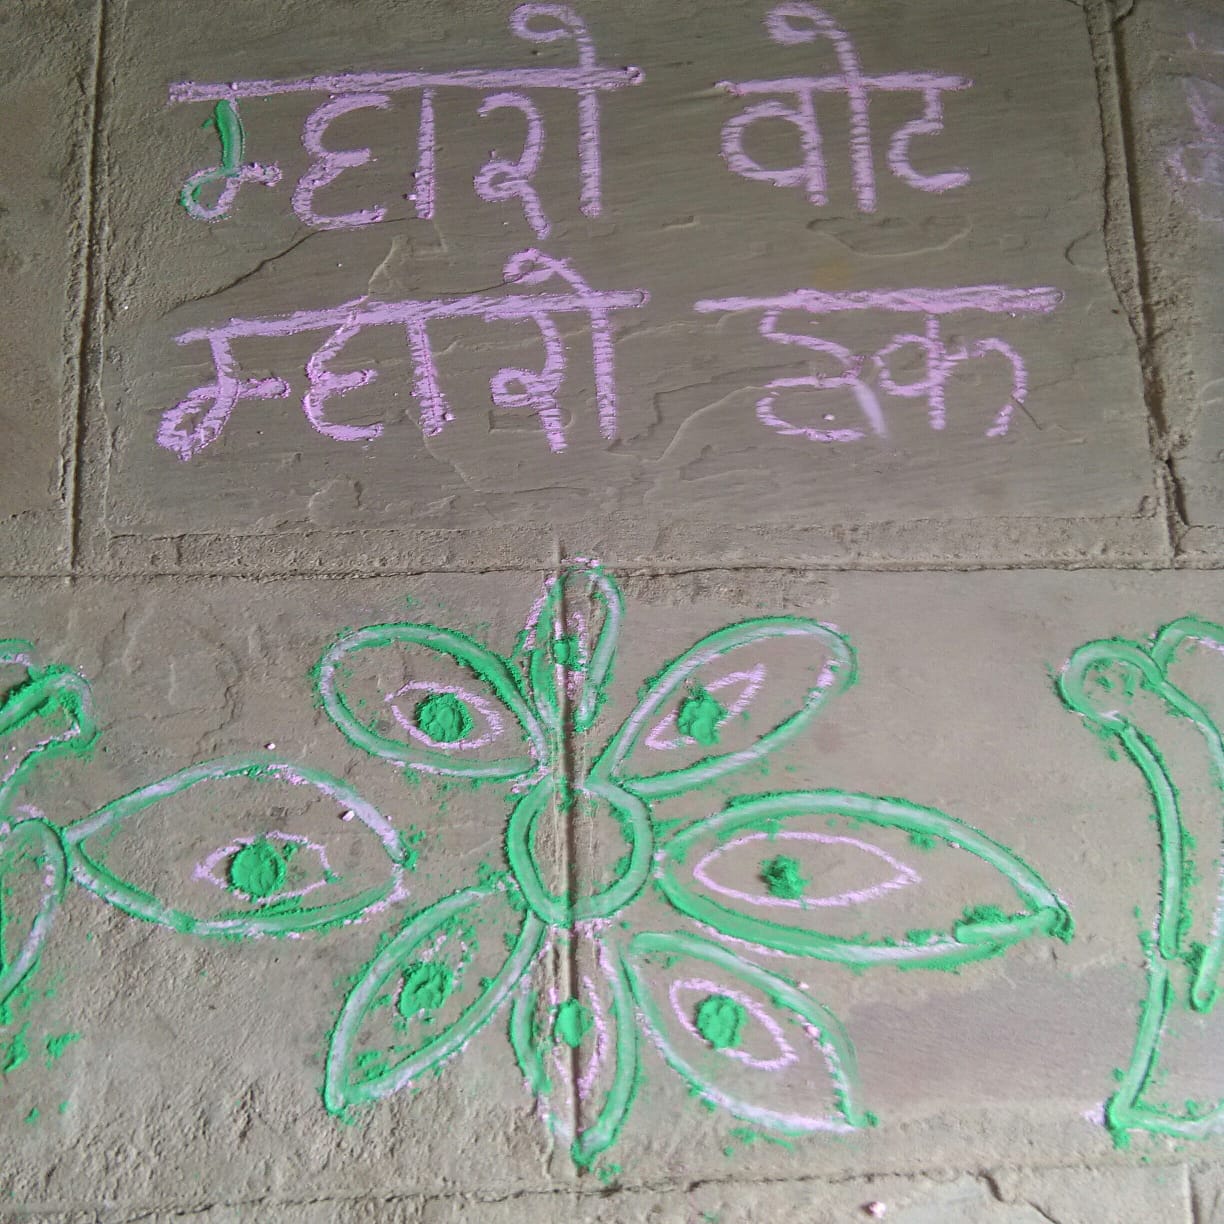 म्हारो वोट
म्हारो हक